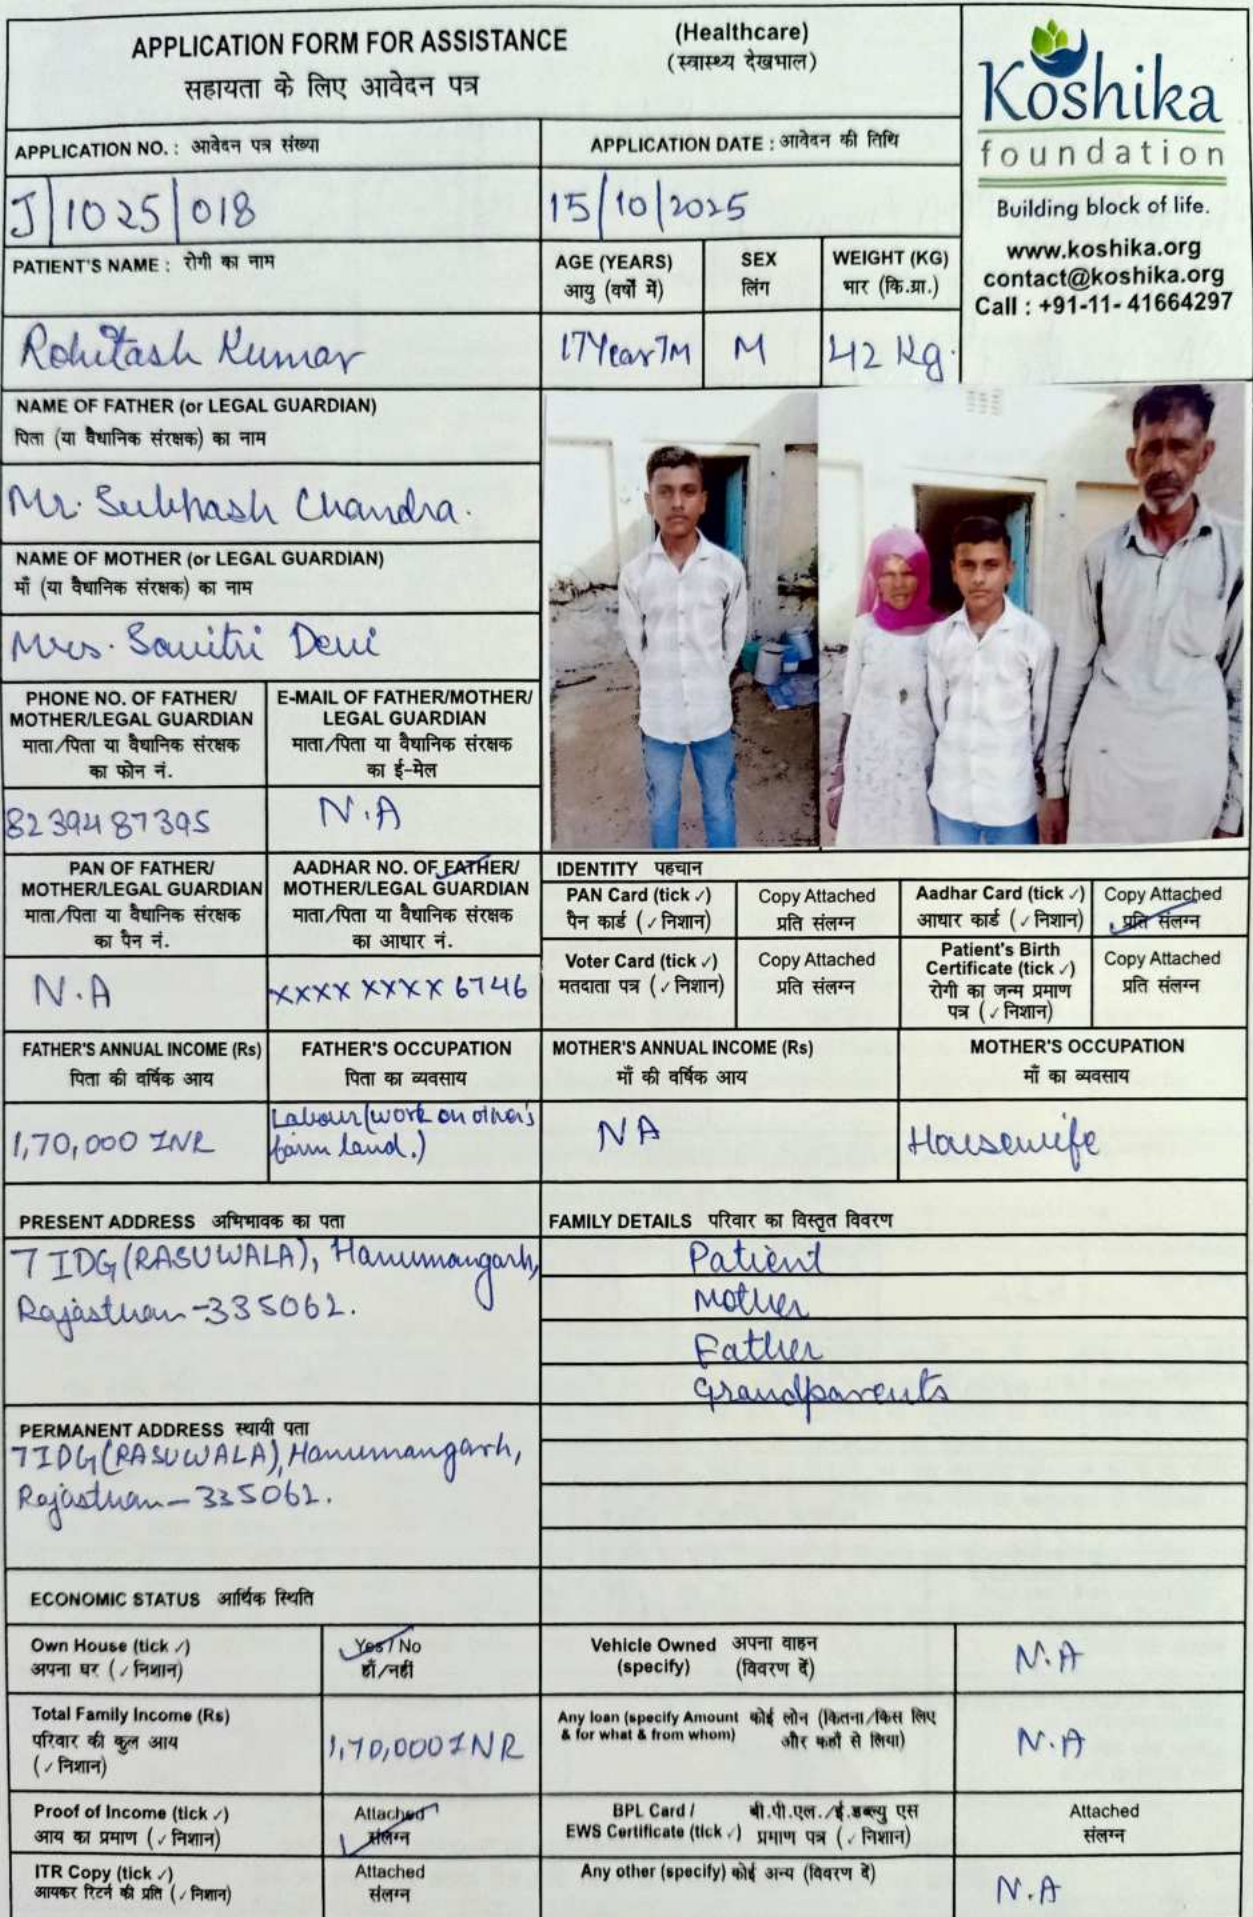 APPLICATION FORM FOR ASSISTANCE (Healthcare)
सहायता के लिए आवेदन पत्र (स्वास्थ्य देखभाल)
Koshika
foundation
Building block of life.
www.koshika.org
contact@koshika.org
Call : +91-11- 41664297
APPLICATION NO. : आवेदन पत्र संख्या
J/1025/018
APPLICATION DATE : आवेदन की तिथि
15/10/2025
PATIENT'S NAME : रोगी का नाम
Rohitash Kumar
AGE (YEARS)
आयु (वर्षों में)
17Year7M
SEX
लिंग
M
WEIGHT (KG)
भार (कि.ग्रा.)
42 Kg.
NAME OF FATHER (or LEGAL GUARDIAN)
पिता (या वैधानिक संरक्षक) का नाम
Mr. Subhash Chandra.
NAME OF MOTHER (or LEGAL GUARDIAN)
माँ (या वैधानिक संरक्षक) का नाम
Mrs. Savitri Devi
PHONE NO. OF FATHER/
MOTHER/LEGAL GUARDIAN
माता/पिता या वैधानिक संरक्षक
का फोन नं.
8239487395
E-MAIL OF FATHER/MOTHER/
LEGAL GUARDIAN
माता/पिता या वैधानिक संरक्षक
का ई-मेल
N.A
PAN OF FATHER/
MOTHER/LEGAL GUARDIAN
माता/पिता या वैधानिक संरक्षक
का पैन नं.
N.A
AADHAR NO. OF FATHER/
MOTHER/LEGAL GUARDIAN
माता/पिता या वैधानिक संरक्षक
का आधार नं.
xxxx xxxx 6746
IDENTITY पहचान
PAN Card (tick ✓)
पैन कार्ड (✓ निशान)
Copy Attached
प्रति संलग्न
Aadhar Card (tick ✓)
आधार कार्ड (✓ निशान)
Copy Attached
प्रति संलग्न
Voter Card (tick ✓)
मतदाता पत्र (✓ निशान)
Copy Attached
प्रति संलग्न
Patient's Birth
Certificate (tick ✓)
रोगी का जन्म प्रमाण
पत्र (✓ निशान)
Copy Attached
प्रति संलग्न
FATHER'S ANNUAL INCOME (Rs)
पिता की वर्षिक आय
1,70,000 INR
FATHER'S OCCUPATION
पिता का व्यवसाय
Labour (work on other's
farm land.)
MOTHER'S ANNUAL INCOME (Rs)
माँ की वर्षिक आय
NA
MOTHER'S OCCUPATION
माँ का व्यवसाय
Housewife
PRESENT ADDRESS अभिभावक का पता
7 IDG (RASUWALA), Hanumangarh,
Rajasthan-335062.
FAMILY DETAILS परिवार का विस्तृत विवरण
Patient
Mother
Father
Grandparents
PERMANENT ADDRESS स्थायी पता
7 IDG (RASUWALA), Hanumangarh,
Rajasthan-335062.
ECONOMIC STATUS आर्थिक स्थिति
Own House (tick ✓)
अपना घर (✓ निशान)
Yes / No
हाँ/नहीं
Vehicle Owned अपना वाहन
(specify) (विवरण दें)
N.A
Total Family Income (Rs)
परिवार की कुल आय
(✓ निशान)
1,70,000 INR
Any loan (specify Amount कोई लोन (कितना/किस लिए
& for what & from whom) और कहाँ से लिया)
N.A
Proof of Income (tick ✓)
आय का प्रमाण (✓ निशान)
Attached
संलग्न
BPL Card / बी.पी.एल./ई.डब्ल्यु एस
EWS Certificate (tick ✓) प्रमाण पत्र (✓ निशान)
Attached
संलग्न
ITR Copy (tick ✓)
आयकर रिटर्न की प्रति (✓ निशान)
Attached
संलग्न
Any other (specify) कोई अन्य (विवरण दें)
N.A